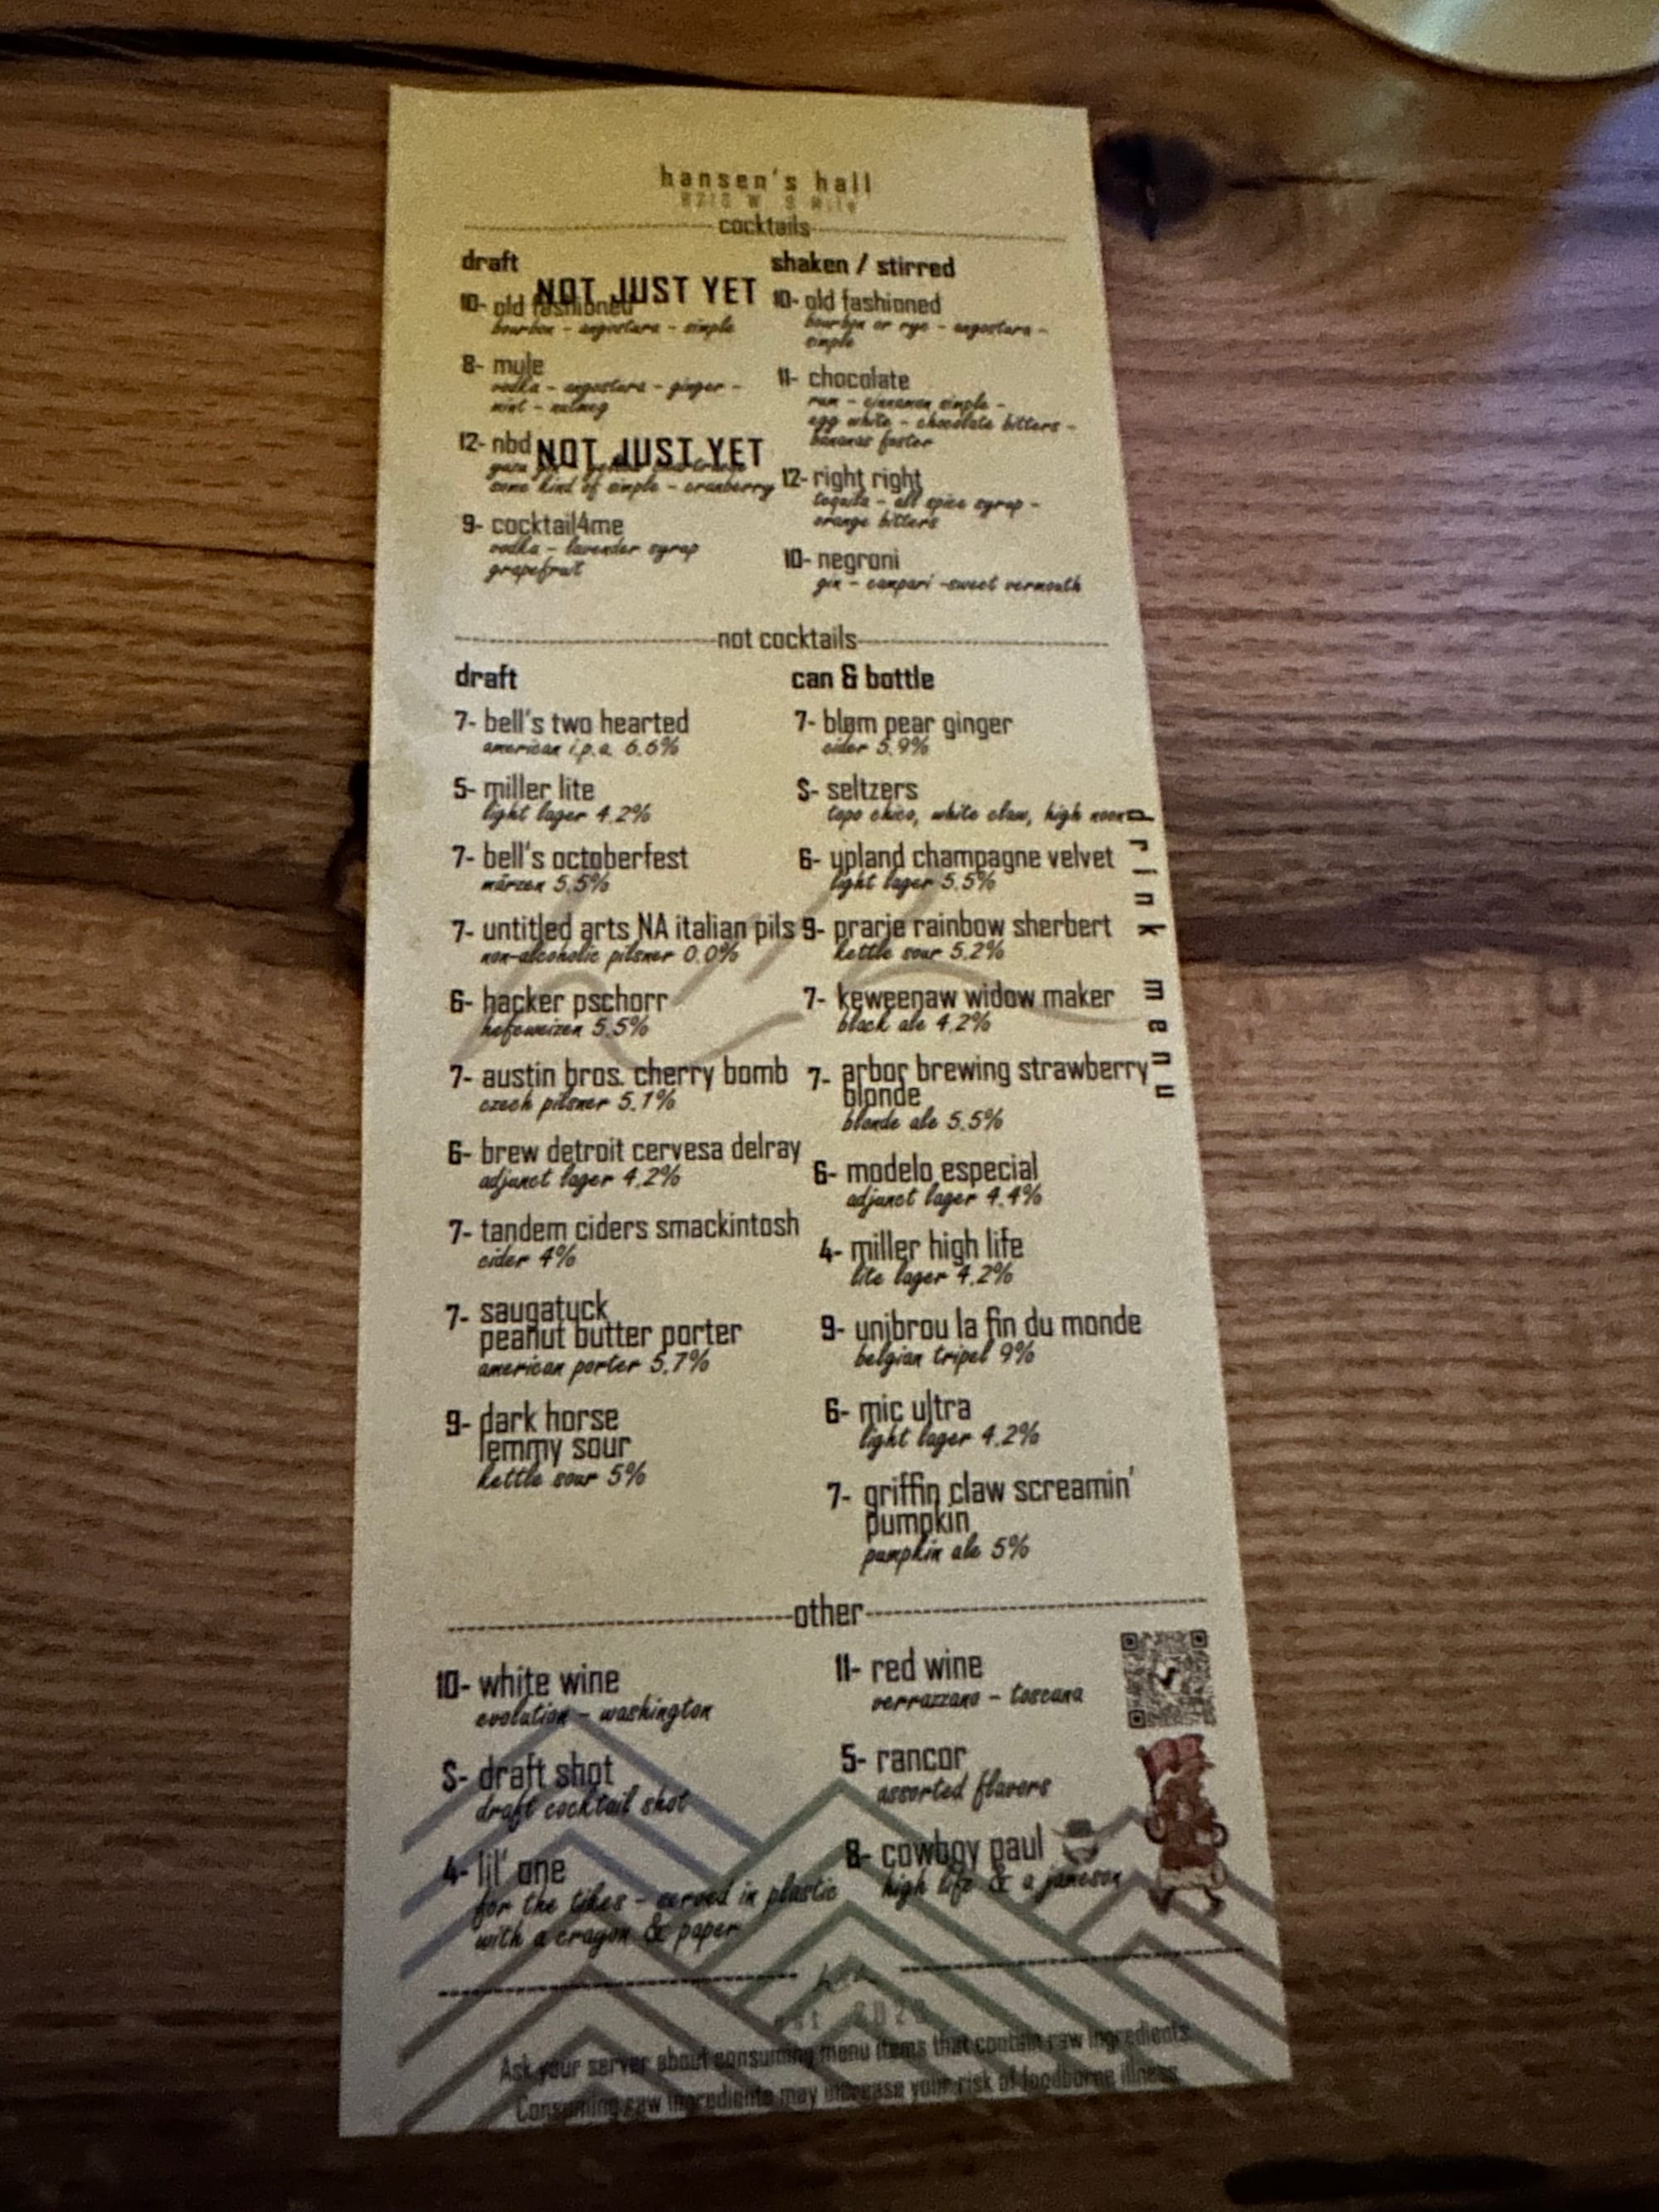 hansen's hall
cocktails
draft
NOT JUST YET
10- old fashioned
bourbon - angostura - simple
8- mule
vodka - angostura - ginger -
mint - nutmeg
12- nbd
NOT JUST YET
some kind of simple - cranberry
9- cocktail4me
vodka - lavender syrup
grapefruit
shaken / stirred
10- old fashioned
bourbon or rye - angostura -
simple
11- chocolate
rum - cinnamon simple -
egg white - chocolate bitters -
bananas foster
12- right right
tequila - all spice syrup -
orange bitters
10- negroni
gin - campari -sweet vermouth
not cocktails
draft
7- bell's two hearted
american i.p.a. 6.6%
5- miller lite
light lager 4.2%
7- bell's octoberfest
märzen 5.5%
7- untitled arts NA italian pils
non-alcoholic pilsner 0.0%
6- hacker pschorr
hefeweizen 5.5%
7- austin bros. cherry bomb
czech pilsner 5.1%
6- brew detroit cervesa delray
adjunct lager 4.2%
7- tandem ciders smackintosh
cider 4%
7- saugatuck
peanut butter porter
american porter 5.7%
9- dark horse
lemmy sour
kettle sour 5%
can & bottle
7- bløm pear ginger
cider 5.9%
S- seltzers
topo chico, white claw, high noon
6- upland champagne velvet
light lager 5.5%
9- prarie rainbow sherbert
kettle sour 5.2%
7- keweenaw widow maker
black ale 4.2%
7- arbor brewing strawberry
blonde
blonde ale 5.5%
6- modelo especial
adjunct lager 4.4%
4- miller high life
lite lager 4.2%
9- unibrou la fin du monde
belgian tripel 9%
6- mic ultra
light lager 4.2%
7- griffin claw screamin'
pumpkin
pumpkin ale 5%
drink menu
other
10- white wine
evolution - washington
S- draft shot
draft cocktail shot
4- lil' one
for the tikes - served in plastic
with a crayon & paper
11- red wine
verrazzano - toscana
5- rancor
assorted flavors
8- cowboy paul
high life & a jameson
est 2020
Ask your server about consuming menu items that contain raw ingredients.
Consuming raw ingredients may increase your risk of foodborne illness.